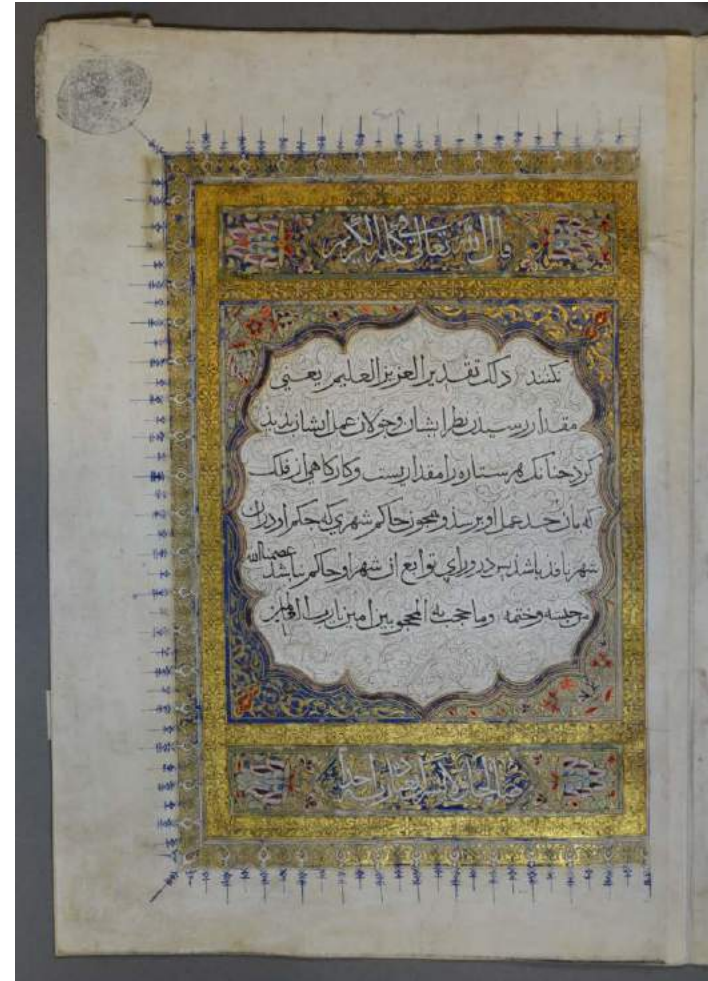 قال الله تعالى في كتابه الكريم
نکنند ذلک تقدیر العزیز العلیم یعنی
مقدار رسیدن نظر ایشان و جولان عمل ایشان بدید
کرد جنانک هر ستاره را مقداریست و کارکاهی از فلک
که بان حد عمل او برسد و همجون حاکم شهری که حکم او در ان
شهر نافذ باشد بس در ورای توابع ان شهر او حاکم نباشد عصمنا الله
من حبسه وختمه وما حجب به المحجوبین امین یا رب العالمین